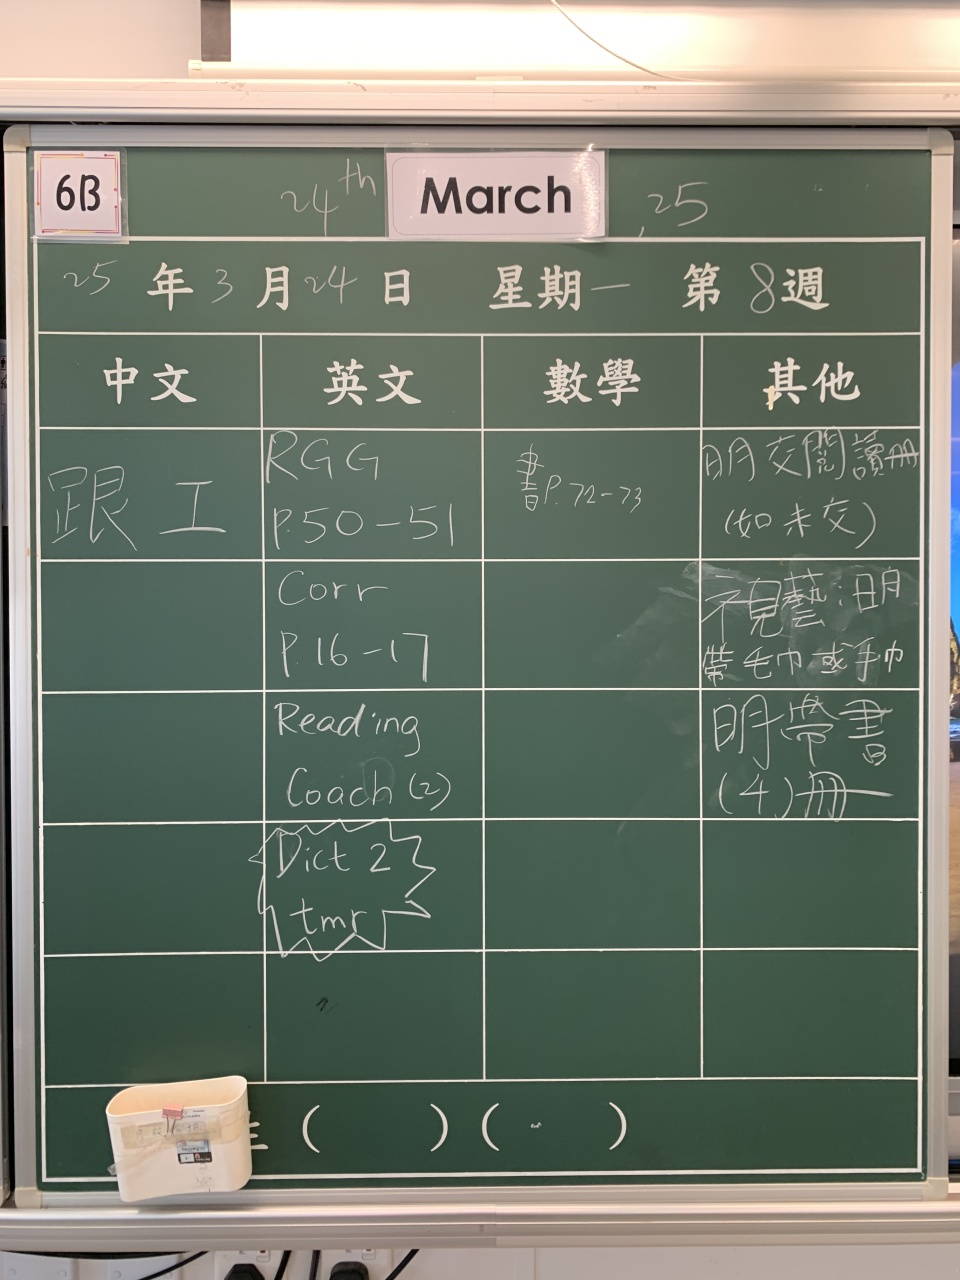 6B
24th March, 25
25年3月24日 星期一 第8週
中文 英文 數學 其他
跟工
RGG
P.50-51
Corr
P.16-17
Reading
Coach (2)
Dict 2
tmr
書P.72-73
明交閱讀冊
(如未交)
視藝:明
帶毛巾或手巾
明帶書
(4)冊
( ) ( )